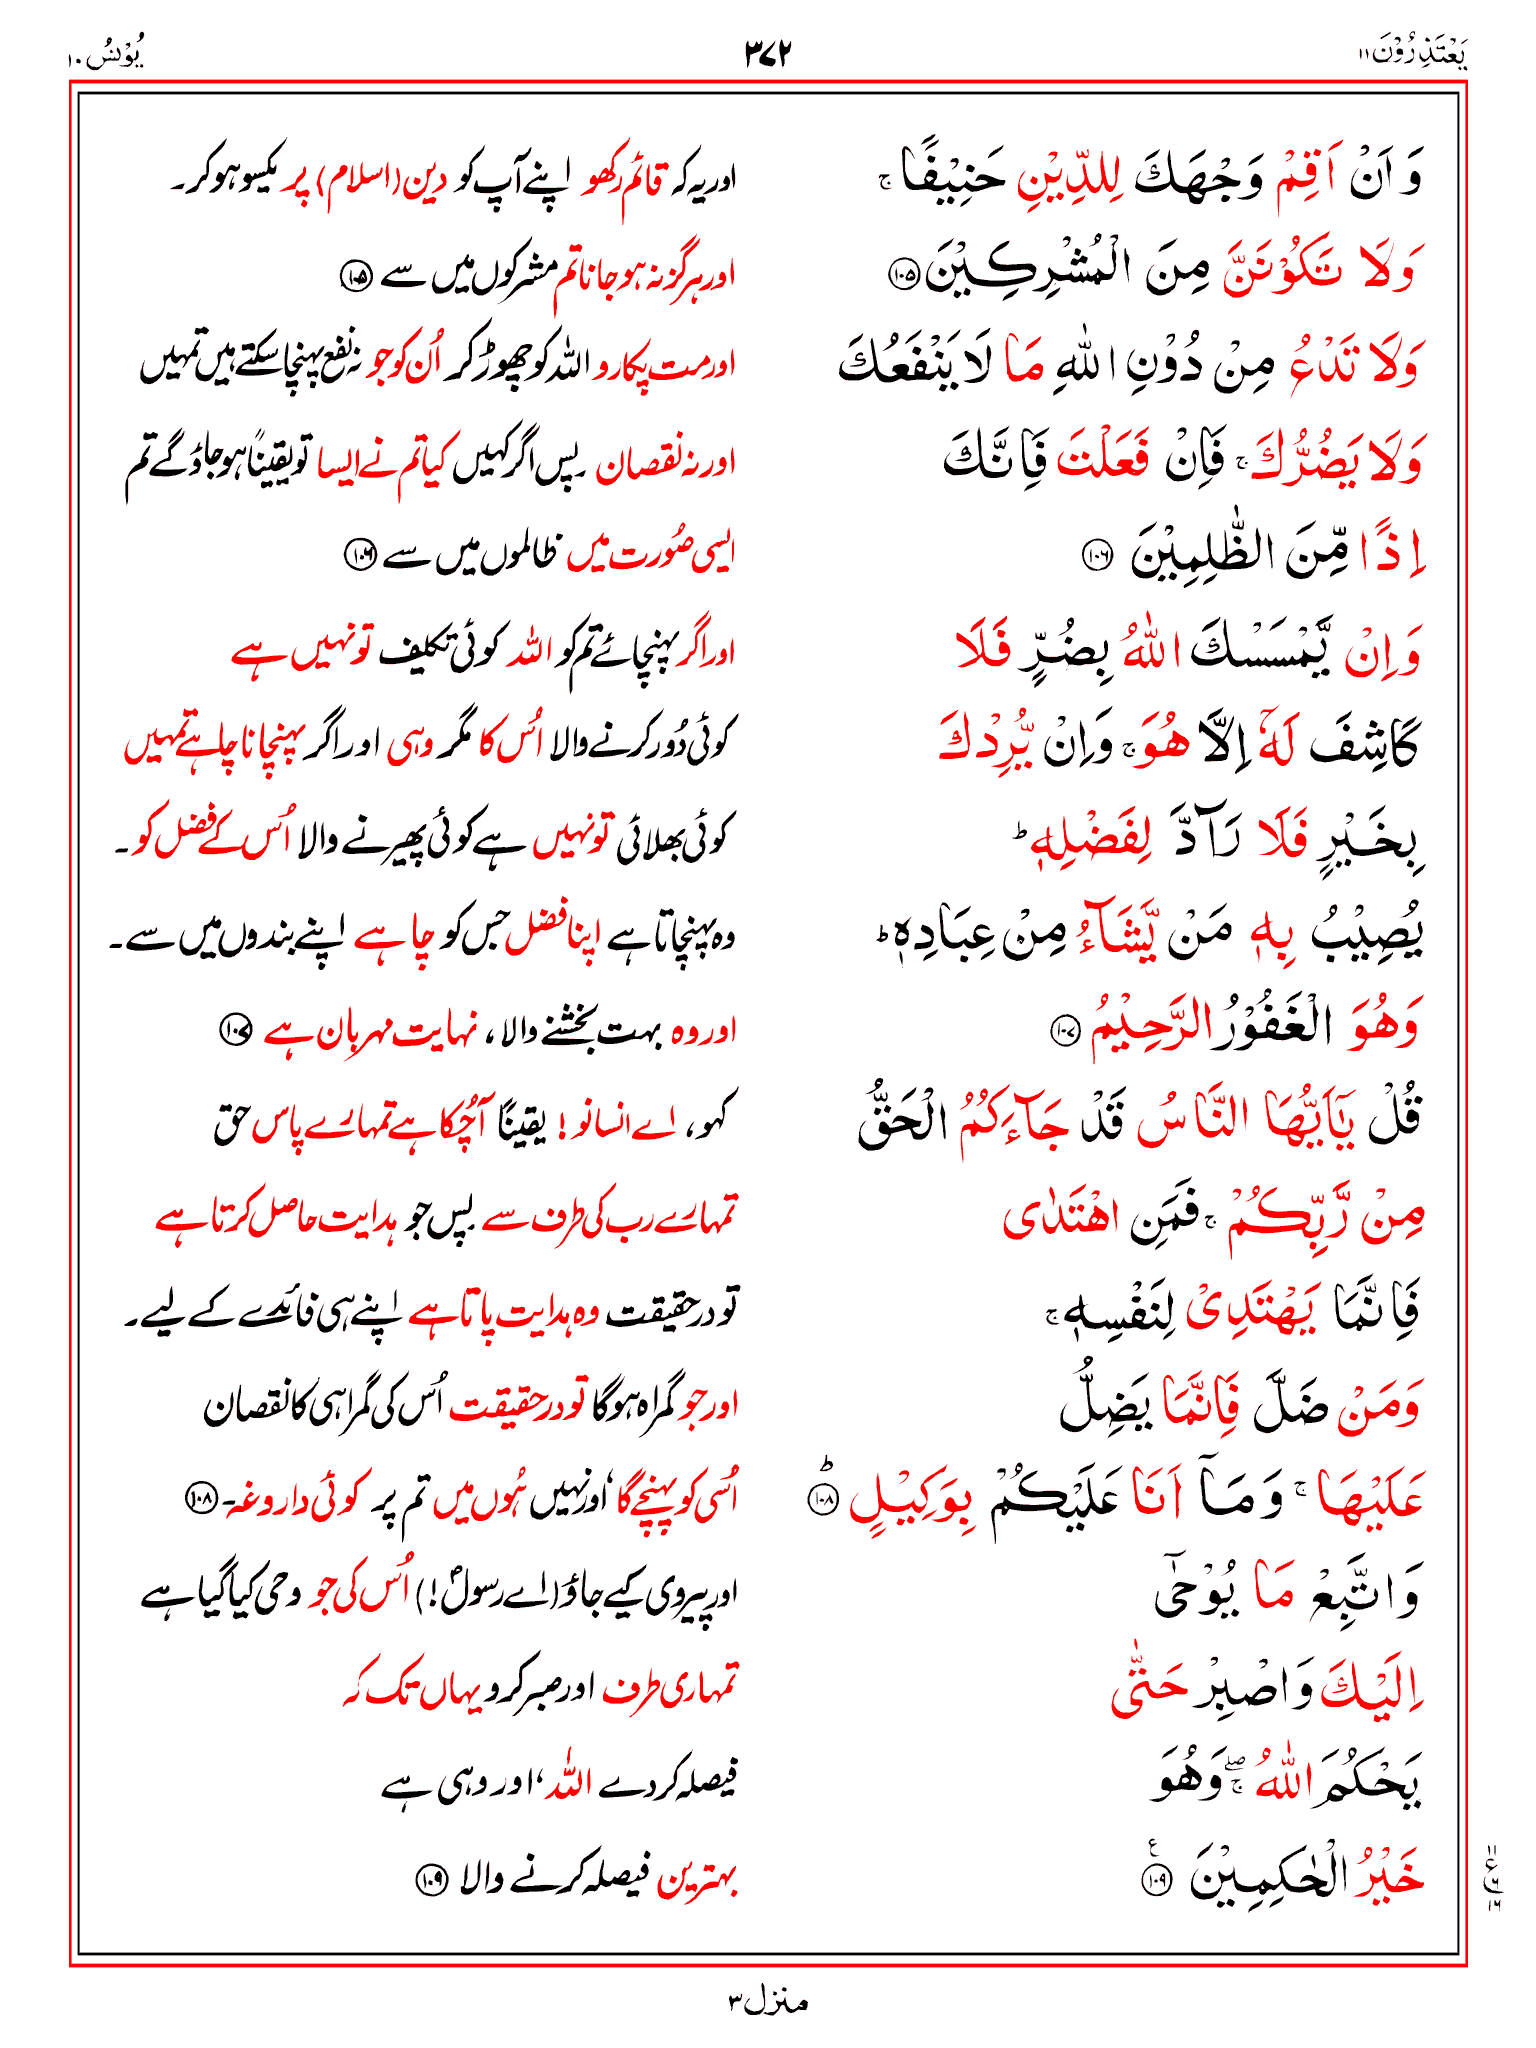 یَعْتَذِرُوْنَ ۱۱
۳۷۲
یُوْنُسُ ۱۰
وَ اَنْ اَقِمْ وَجْهَكَ لِلدِّیْنِ حَنِیْفًا ۚ
اور یہ کہ قائم رکھو اپنے آپ کو دین (اسلام) پر یکسو ہو کر۔
وَلَا تَكُوْنَنَّ مِنَ الْمُشْرِكِیْنَ ۝۱۰۵
اور ہرگز نہ ہو جانا تم مشرکوں میں سے ۝۱۰۵
وَلَا تَدْعُ مِنْ دُوْنِ اللّٰهِ مَا لَا یَنْفَعُكَ
اور مت پکارو اللہ کو چھوڑ کر اُن کو جو نہ نفع پہنچا سکتے ہیں تمہیں
وَلَا یَضُرُّكَ ۚ فَاِنْ فَعَلْتَ فَاِنَّكَ
اور نہ نقصان پس اگر کہیں کیا تم نے ایسا تو یقیناً ہو جاؤ گے تم
اِذًا مِّنَ الظّٰلِمِیْنَ ۝۱۰۶
ایسی صُورت میں ظالموں میں سے ۝۱۰۶
وَاِنْ یَّمْسَسْكَ اللّٰهُ بِضُرٍّ فَلَا
اور اگر پہنچائے تم کو اللہ کوئی تکلیف تو نہیں ہے
كَاشِفَ لَهٗۤ اِلَّا هُوَ ۚ وَاِنْ یُّرِدْكَ
کوئی دُور کرنے والا اُس کا مگر وہی اور اگر پہنچانا چاہے تمہیں
بِخَیْرٍ فَلَا رَآدَّ لِفَضْلِهٖ ؕ
کوئی بھلائی تو نہیں ہے کوئی پھیرنے والا اُس کے فضل کو۔
یُصِیْبُ بِهٖ مَنْ یَّشَآءُ مِنْ عِبَادِهٖ ؕ
وہ پہنچاتا ہے اپنا فضل جس کو چاہے اپنے بندوں میں سے۔
وَهُوَ الْغَفُوْرُ الرَّحِیْمُ ۝۱۰۷
اور وہ بہت بخشنے والا، نہایت مہربان ہے ۝۱۰۷
قُلْ یٰۤاَیُّهَا النَّاسُ قَدْ جَآءَكُمُ الْحَقُّ
کہو، اے انسانو! یقیناً آچُکا ہے تمہارے پاس حق
مِنْ رَّبِّكُمْ ۚ فَمَنِ اهْتَدٰی
تمہارے رب کی طرف سے پس جو ہدایت حاصل کرتا ہے
فَاِنَّمَا یَهْتَدِیْ لِنَفْسِهٖ ۚ
تو درحقیقت وہ ہدایت پاتا ہے اپنے ہی فائدے کے لیے۔
وَمَنْ ضَلَّ فَاِنَّمَا یَضِلُّ
اور جو گمراہ ہوگا تو درحقیقت اُس کی گمراہی کا نقصان
عَلَیْهَا ۚ وَمَاۤ اَنَا عَلَیْكُمْ بِوَكِیْلٍ ؕ۝۱۰۸
اُسی کو پہنچے گا ’اور نہیں ہُوں میں تم پر کوئی داروغہ۔ ۝۱۰۸
وَاتَّبِعْ مَا یُوْحٰۤی
اور پیروی کیے جاؤ (اے رسولؐ!) اُس کی جو وحی کیا گیا ہے
اِلَیْكَ وَاصْبِرْ حَتّٰی
تمہاری طرف اور صبر کرو یہاں تک کہ
یَحْكُمَ اللّٰهُ ۖۚ وَهُوَ
فیصلہ کر دے اللہ ’اور وہی ہے
خَیْرُ الْحٰكِمِیْنَ ۝۱۰۹ ع
بہترین فیصلہ کرنے والا ۝۱۰۹
۱۱
ع
۶
۱۶
منزل ۳